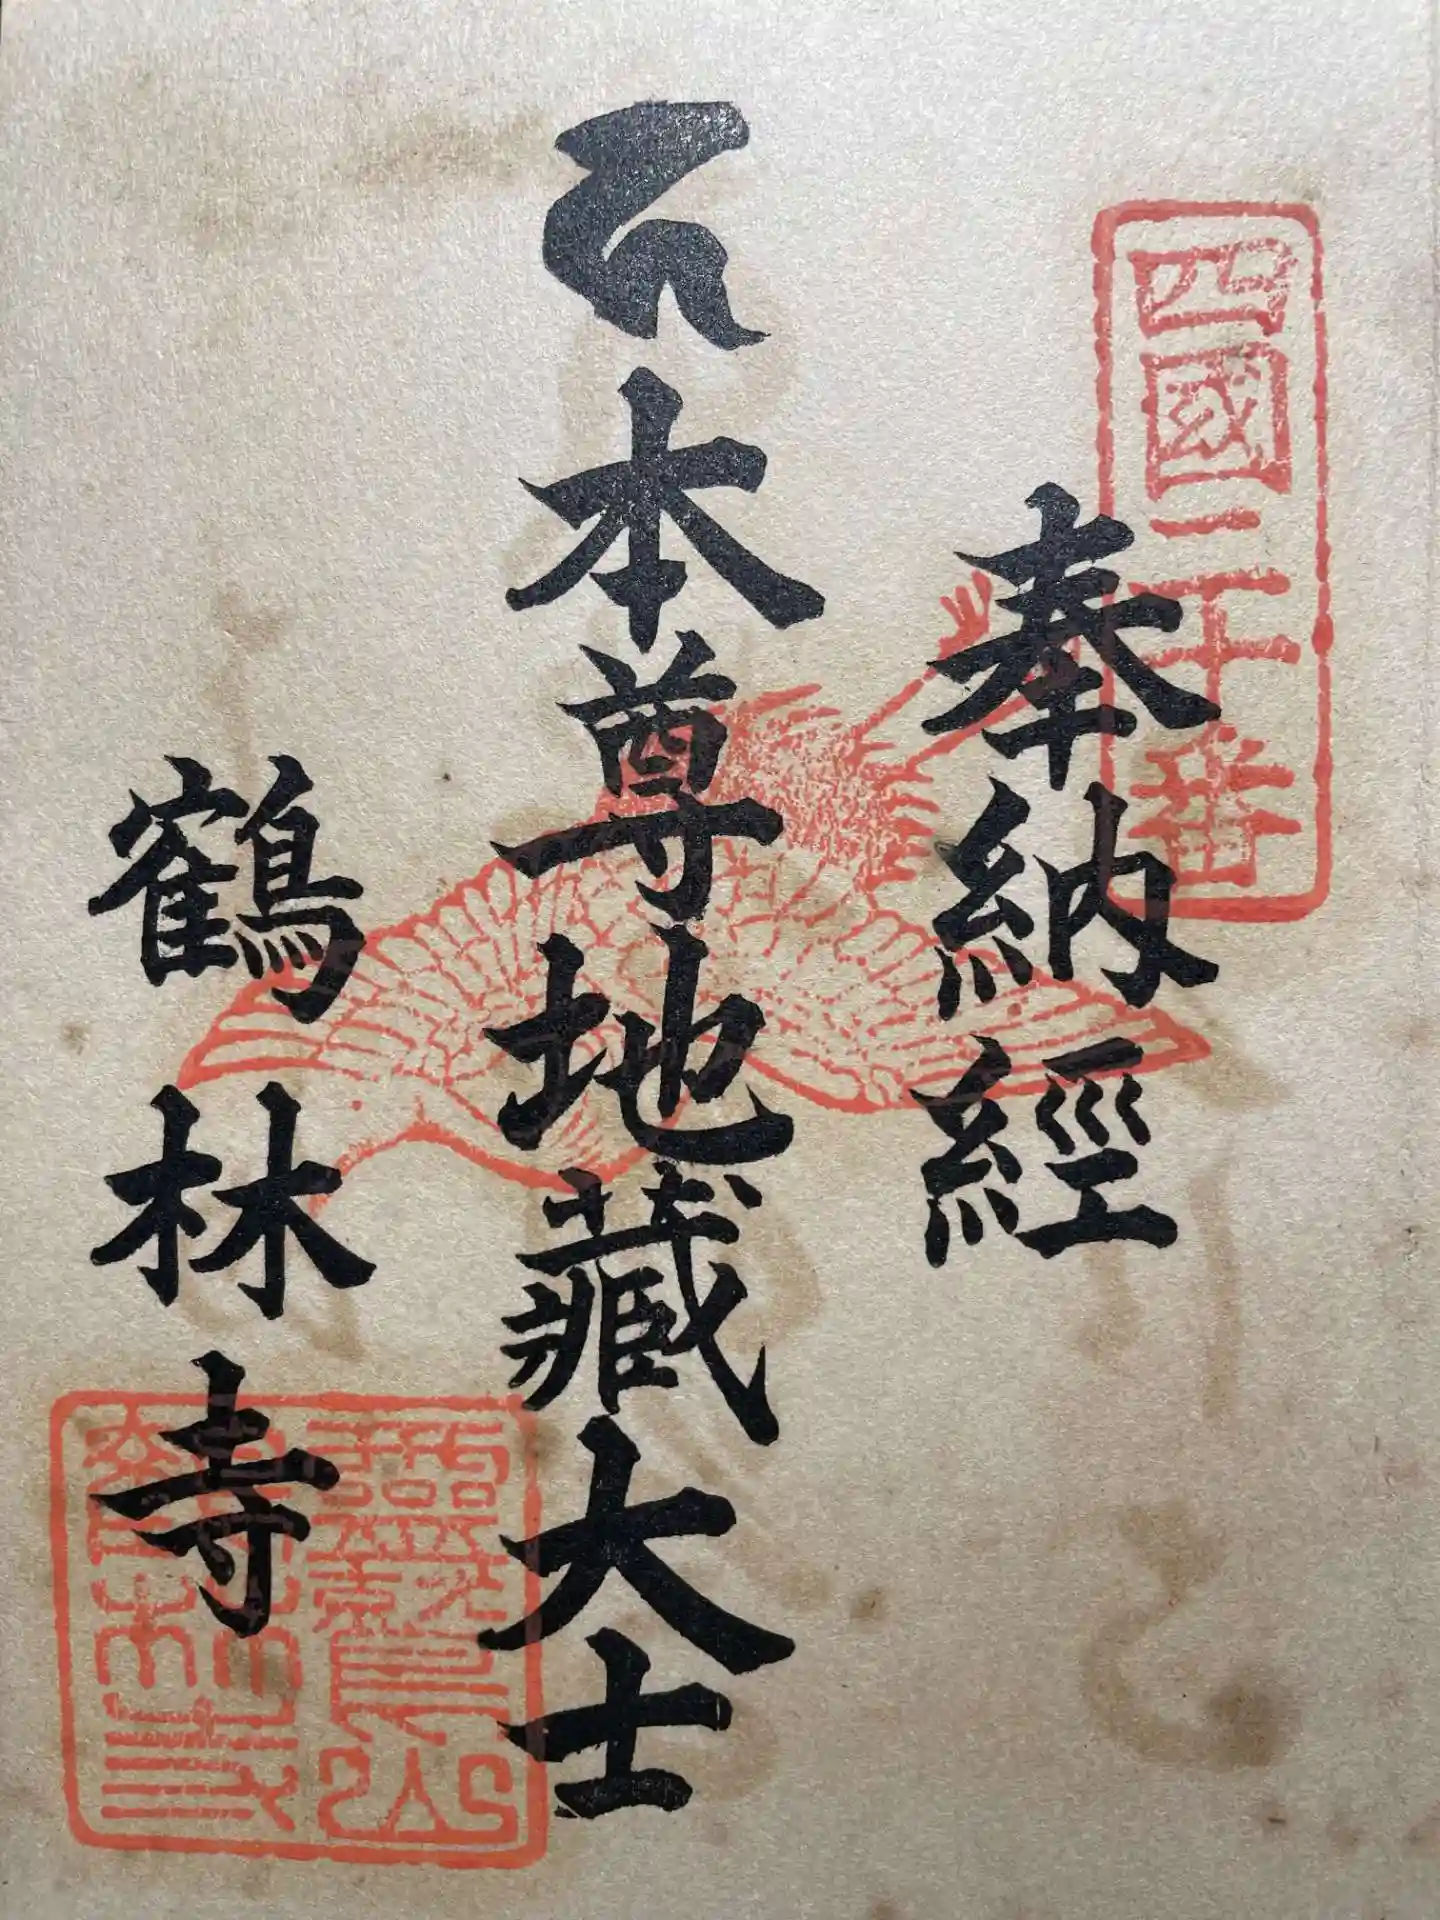 四國二十番
奉納經
本尊地藏大士
鶴林寺